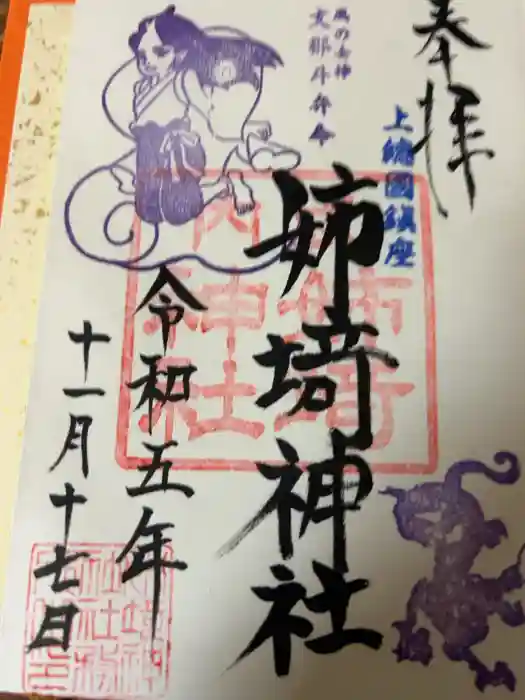 奉拝
上總國鎮座
風の女神
支那斗弁命
姉埼神社
令和五年
十一月十七日